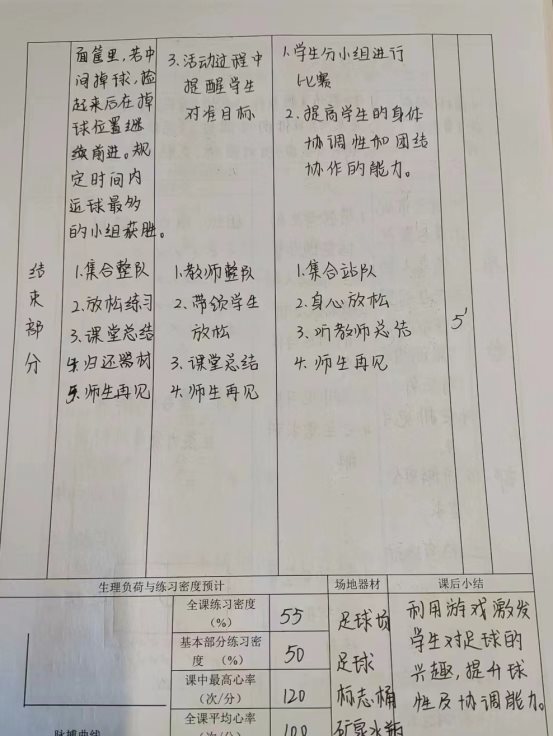 面筐里,若中
间掉球,捡
起来后在掉
球位置继
续前进。规
定时间内
运球最多
的小组获胜。
3.活动过程中
提醒学生
对准目标
1.学生分小组进行
比赛
2.提高学生的身体
协调性加团结
协作的能力。
结束部分
1.集合整队
2.放松练习
3.课堂总结
4.归还器材
5.师生再见
1.教师整队
2.带领学生
放松
3.课堂总结
4.师生再见
1.集合站队
2.身心放松
3.听教师总结
4.师生再见
5'
生理负荷与练习密度预计
场地器材
课后小结
全课练习密度
(%)
55
基本部分练习密
度 (%)
50
课中最高心率
(次/分)
120
全课平均心率
(次/分)
100
脉搏曲线
足球场
足球
标志桶
矿泉水瓶
利用游戏激发
学生对足球的
兴趣,提升球
性及协调能力。